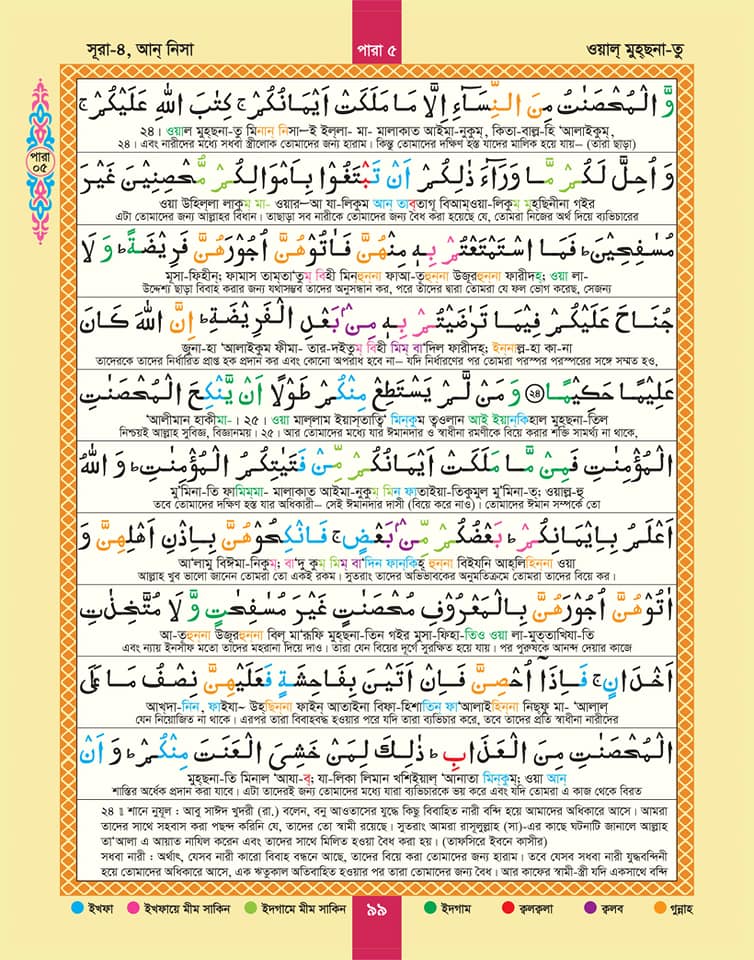 সূরা-৪, আন্ নিসা
পারা ৫
ওয়াল্ মুহ্ছনা-তু
পারা
০৫
وَّ الْمُحْصَنٰتُ مِنَ النِّسَآءِ اِلَّا مَا مَلَكَتْ اَيْمَانُكُمْ ۚ كِتٰبَ اللّٰهِ عَلَيْكُمْ ۚ
২৪। ওয়াল মুহ্ছনা-তু মিনান্ নিসা—ই ইল্লা- মা- মালাকাত আইমা-নুকুম্, কিতা-বাল্ল-হি ‘আলাইকুম্,
২৪। এবং নারীদের মধ্যে সধবা স্ত্রীলোক তোমাদের জন্য হারাম। কিন্তু তোমাদের দক্ষিণ হস্ত যাদের মালিক হয়ে যায়– (তারা ছাড়া)
وَ اُحِلَّ لَكُمْ مَّا وَرَآءَ ذٰلِكُمْ اَنْ تَبْتَغُوْا بِاَمْوَالِكُمْ مُّحْصِنِيْنَ غَيْرَ
ওয়া উহিল্লা লাকুম্ মা- ওয়ার—আ যা-লিকুম আন তাব্তাগূ বিআম্ওয়া-লিকুম্ মুহছিনীনা গইর
এটা তোমাদের জন্য আল্লাহর বিধান। তাছাড়া সব নারীকে তোমাদের জন্য বৈধ করা হয়েছে যে, তোমরা নিজের অর্থ দিয়ে ব্যভিচারের
مُسٰفِحِيْنَ ؕ فَمَا اسْتَمْتَعْتُمْ بِهٖ مِنْهُنَّ فَاٰتُوْهُنَّ اُجُوْرَهُنَّ فَرِيْضَةً ؕ وَ لَا
মুসা-ফিহীন্; ফামাস তাম্তা‘তুম্ বিহী মিনহুন্না ফাআ-তূহুন্না উজূরহুন্না ফারীদহ্; ওয়া লা-
উদ্দেশ্য ছাড়া বিবাহ করার জন্য যথাসম্ভব তাদের অনুসন্ধান কর, পরে তাদের দ্বারা তোমরা যে ফল ভোগ করেছ, সেজন্য
جُنَاحَ عَلَيْكُمْ فِيْمَا تَرٰضَيْتُمْ بِهٖ مِنْۢ بَعْدِ الْفَرِيْضَةِ ؕ اِنَّ اللّٰهَ كَانَ
জুনা-হা ‘আলাইকুম ফীমা- তার-দইতুম্ বিহী মিম্ বা‘দিল ফারীদহ্; ইন্নাল্ল-হা কা-না
তাদেরকে তাদের নির্ধারিত প্রাপ্ত হক প্রদান কর এবং কোনো অপরাধ হবে না– যদি নির্ধারণের পর তোমরা পরস্পর পরস্পরের সঙ্গে সম্মত হও,
عَلِيْمًا حَكِيْمًا ۝٢٤ وَ مَنْ لَّمْ يَسْتَطِعْ مِنْكُمْ طَوْلًا اَنْ يَّنْكِحَ الْمُحْصَنٰتِ
‘আলীমান হাকীমা-। ২৫। ওয়া মাল্লাম ইয়াস্তাত্বি‘ মিন্কুম ত্বওলান আই ইয়ানকিহাল মুহছনা-তিল
নিশ্চয়ই আল্লাহ সুবিজ্ঞ, বিজ্ঞানময়। ২৫। আর তোমাদের মধ্যে যার ঈমানদার ও স্বাধীনা রমণীকে বিয়ে করার শক্তি সামর্থ্য না থাকে,
الْمُؤْمِنٰتِ فَمِنْ مَّا مَلَكَتْ اَيْمَانُكُمْ مِّنْ فَتَيٰتِكُمُ الْمُؤْمِنٰتِ ؕ وَ اللّٰهُ
মু’মিনা-তি ফামিম্মা- মালাকাত আইমা-নুকুম্ মিন ফাতাইয়া-তিকুমুল মু’মিনা-ত্; ওয়াল্ল-হু
তবে তোমাদের দক্ষিণ হস্ত যার অধিকারী– সেই ঈমানদার দাসী (বিয়ে করে নাও)। তোমাদের ঈমান সম্পর্কে তো
اَعْلَمُ بِاِيْمَانِكُمْ ؕ بَعْضُكُمْ مِّنْۢ بَعْضٍ ۚ فَانْكِحُوْهُنَّ بِاِذْنِ اَهْلِهِنَّ وَ
আ‘লামু বিঈমা-নিকুম্; বা‘দু কুম্ মিম্ বা‘দিন ফান্কিহূ হুন্না বিইযনি আহ্লিহিন্না ওয়া
আল্লাহ খুব ভালো জানেন তোমরা তো একই রকম। সুতরাং তাদের অভিভাবকের অনুমতিক্রমে তোমরা তাদের বিয়ে কর।
اٰتُوْهُنَّ اُجُوْرَهُنَّ بِالْمَعْرُوْفِ مُحْصَنٰتٍ غَيْرَ مُسٰفِحٰتٍ وَّ لَا مُتَّخِذٰتِ
আ-তূহুন্না উজূরহুন্না বিল্ মা‘রূফি মুহ্ছনা-তিন গইর মুসা-ফিহা-তিও ওয়া লা-মুত্তাখিযা-তি
এবং ন্যায় ইনসাফ মতো তাদের মহরানা দিয়ে দাও। তারা যেন বিয়ের দূর্গে সুরক্ষিত হয়ে যায়। পর পুরুষকে আনন্দ দেয়ার কাজে
اَخْدَانٍ ۚ فَاِذَاۤ اُحْصِنَّ فَاِنْ اَتَيْنَ بِفَاحِشَةٍ فَعَلَيْهِنَّ نِصْفُ مَا عَلَى
আখ্দা-নিন, ফাইযা- উহ্ছিন্না ফাইন্ আতাইনা বিফা-হিশাতিন্ ফা‘আলাইহিন্না নিছফু মা- ‘আলাল্
যেন নিয়োজিত না থাকে। এরপর তারা বিবাহবদ্ধ হওয়ার পরে যদি তারা ব্যভিচার করে, তবে তাদের প্রতি স্বাধীনা নারীদের
الْمُحْصَنٰتِ مِنَ الْعَذَابِ ؕ ذٰلِكَ لِمَنْ خَشِيَ الْعَنَتَ مِنْكُمْ ؕ وَ اَنْ
মুহ্ছনা-তি মিনাল ‘আযা-ব্; যা-লিকা লিমান খশিইয়াল্ ‘আনাতা মিন্কুম্; ওয়া আন্
শাস্তির অর্ধেক প্রদান করা যাবে। এটা তাদেরই জন্য তোমাদের মধ্যে যারা ব্যভিচারকে ভয় করে এবং যদি তোমরা এ কাজ থেকে বিরত
২৪ ঃ শানে নুযূল : আবূ সাঈদ খুদরী (রা.) বলেন, বনু আওতাসের যুদ্ধে কিছু বিবাহিত নারী বন্দি হয়ে আমাদের অধিকারে আসে। আমরা
তাদের সাথে সহবাস করা পছন্দ করিনি যে, তাদের তো স্বামী রয়েছে। সুতরাং আমরা রাসূলুল্লাহ (সা)-এর কাছে ঘটনাটি জানালে আল্লাহ
তা‘আলা এ আয়াত নাযিল করেন এবং তাদের সাথে মিলিত হওয়া বৈধ করা হয়। (তাফসিরে ইবনে কাসীর)
সধবা নারী : অর্থাৎ, যেসব নারী কারো বিবাহ বন্ধনে আছে, তাদের বিয়ে করা তোমাদের জন্য হারাম। তবে যেসব সধবা নারী যুদ্ধবন্দিনী
হয়ে তোমাদের অধিকারে আসে, এক ঋতুকাল অতিবাহিত হওয়ার পর তারা তোমাদের জন্য বৈধ। আর কাফের স্বামী-স্ত্রী যদি একসাথে বন্দি
ইখফা ইখফায়ে মীম সাকিন ইদগামে মীম সাকিন ৯৯ ইদগাম ক্বলক্বলা ক্বলব গুন্নাহ